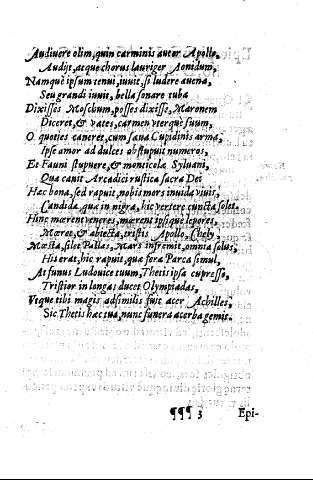 Audivere olim, quin carminis auctor Apollo,
Audijt, atque chorus lauriger Aonidum,
Namque ipsum tenui, iuvit, si ludere avena,
Seu grandi iuvit, bella sonare tuba
Dixisses Moschum, posses dixisse, Maronem
Diceret, & vates, carmen vterque suum,
O quoties caneret, cum sæva Cupidinis arma,
Ipse amor ad dulces obstupuit numeros,
Et Fauni stupuere, & monticolæ Sylvani,
Qua cavit Arcadici rustica sacra Dei
Hæc bona, sed rapuit, nobis mors invida vivis,
Candida quæ in nigra, hic vertere cuncta solet.
Hinc mærent veneres, mærent ipsique lepores,
Mæret, & abiecta, tristis Apollo, Chely,
Mæsta, silet Pallas, Mars infremit, omnia solus,
His erat, hic rapuit, quæ fera Parca simul,
At funus Ludovice tuum, Thetis ipsa cupresso,
Tristior in longas ducet Olympiadas,
Vtque tibi magis adsimilis fuit acer Achilles,
Sic Thetis hæc tua, nunc funera acerba gemis.
¶¶¶ 3 Epi-